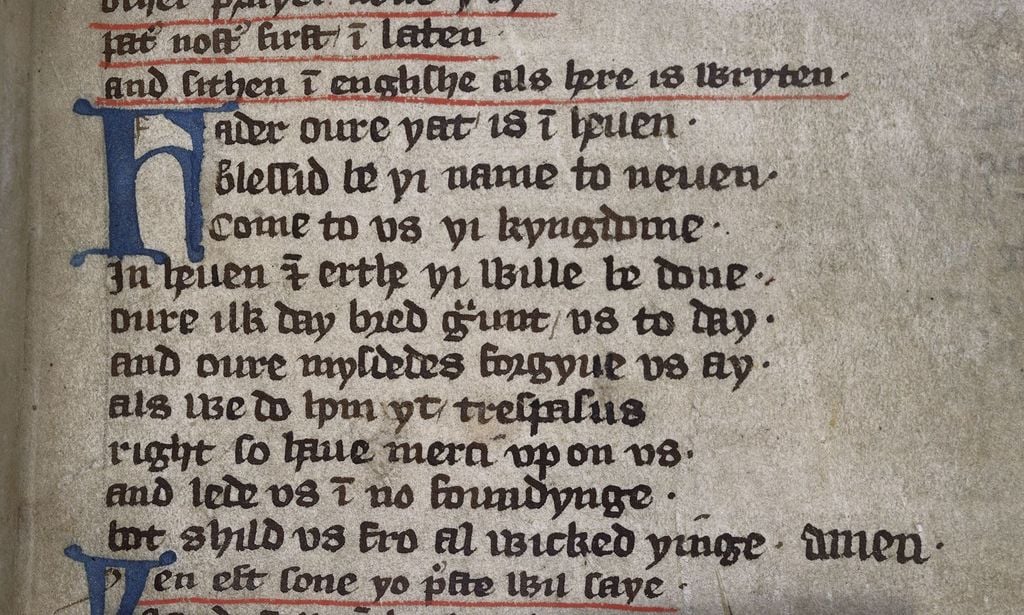 pat' nost' first ī laten
and sithen ī englishe als here is wryten·
Fader oure yat is ī heuen·
blessid be yi name to neuen·
Come to vs yi kyngdome·
In heuen ⁊ erthe yi wille be done·
oure ilk day bred gᵃunt/ vs to day·
and oure mysdedes forgyue vs ay·
als we do hym yt/ trespasus
right so haue merci vp on vs·
and lede vs ī no foundynge·
bot shild vs fro al wicked yinge· amen·
Yen eft sone yo p̃ste wil saye·